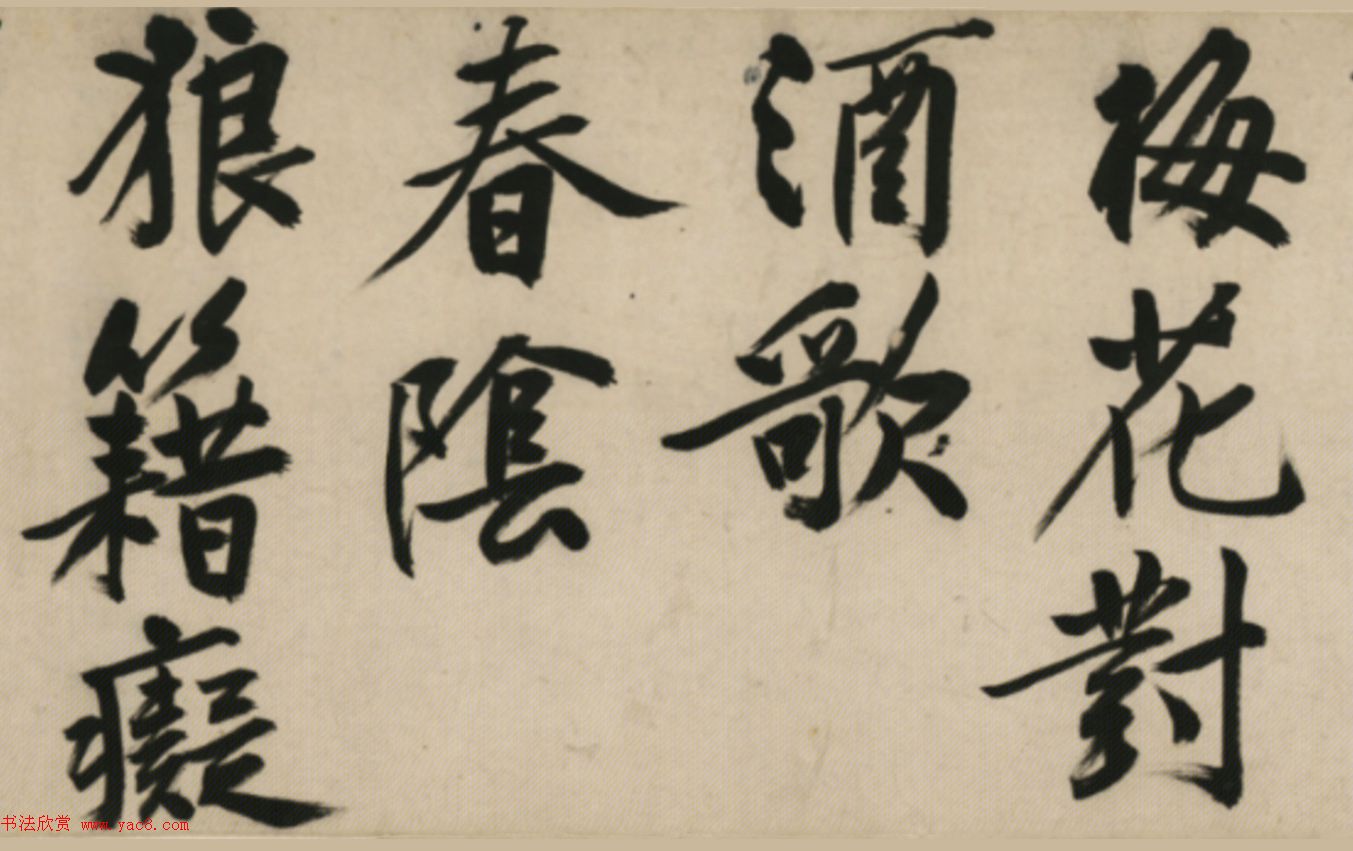 梅花對
酒歌
春陰
狼籍癡
书法欣赏 www.yac8.com